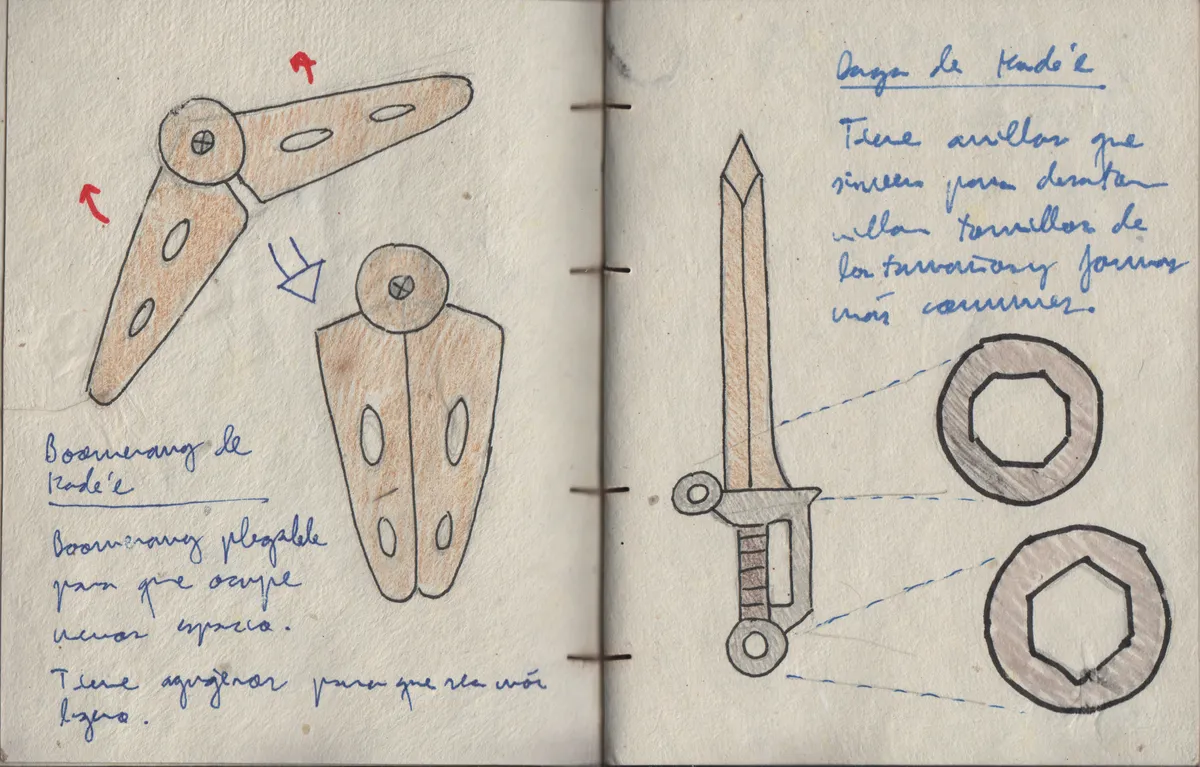 Boomerang de
Kadé'e
Boomerang plegable
para que ocupe
menos espacio.
Tiene agujeros para que sea más
ligero.
Daga de Kadé'e
Tiene anillos que
sirven para desator
nillar tornillos de
los tamaños y formas
más comunes.